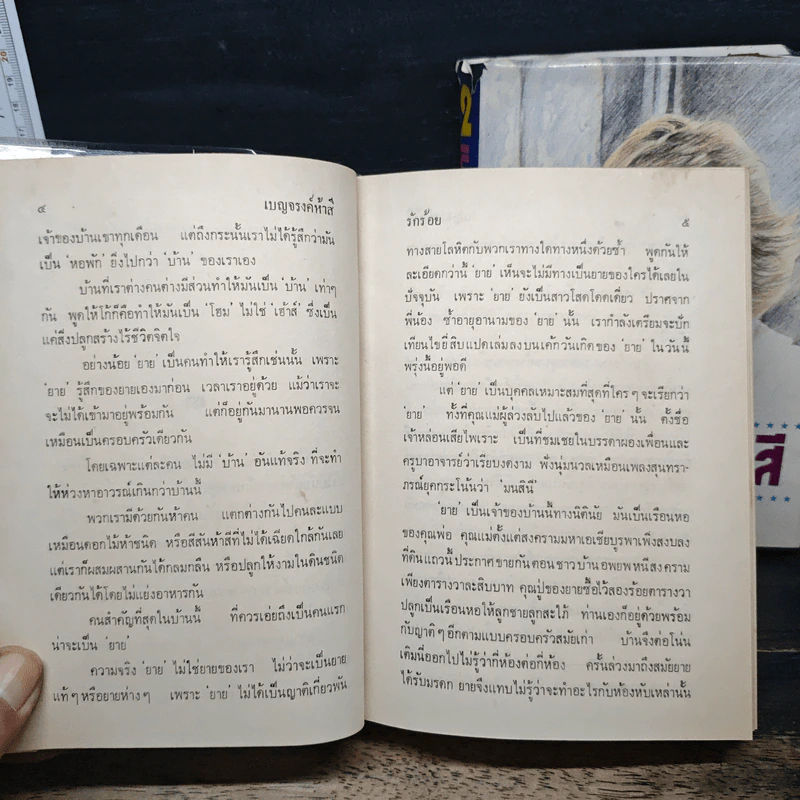 ๔ เบญจรงค์ห้าสี
เจ้าของบ้านเขาทุกเดือน แต่ถึงกระนั้นเราไม่ได้รู้สึกว่ามัน
เป็น 'หอพัก' ยิ่งไปกว่า 'บ้าน' ของเราเอง
บ้านที่เราต่างคนต่างมีส่วนทำให้มันเป็น 'บ้าน' เท่าๆ
กัน พูดให้โก้ก็คือทำให้มันเป็น 'โฮม' ไม่ใช่ 'เฮ้าส์' ซึ่งเป็น
แค่สิ่งปลูกสร้างไร้ชีวิตจิตใจ
อย่างน้อย 'ยาย' เป็นคนทำให้เรารู้สึกเช่นนั้น เพราะ
'ยาย' รู้สึกของยายเองมาก่อน เวลาเราอยู่ด้วย แม้ว่าเราจะ
จะไม่ได้เข้ามาอยู่พร้อมกัน แต่ก็อยู่กันมานานพอควรจน
เหมือนเป็นครอบครัวเดียวกัน
โดยเฉพาะแต่ละคน ไม่มี 'บ้าน' อันแท้จริง ที่จะทำ
ให้ห่วงหาอาวรณ์เกินกว่าบ้านนี้
พวกเรามีด้วยกันห้าคน แตกต่างกันไปคนละแบบ
เหมือนดอกไม้ห้าชนิด หรือสีสันห้าสีที่ไม่ได้เฉียดใกล้กันเลย
แต่เราก็ผสมผสานได้กลมกลืน หรือปลูกให้งามในดินชนิด
เดียวกันได้โดยไม่แย่งอาหารกัน
คนสำคัญที่สุดในบ้านนี้ ที่ควรเอ่ยถึงเป็นคนแรก
น่าจะเป็น 'ยาย'
ความจริง 'ยาย' ไม่ใช่ยายของเรา ไม่ว่าจะเป็นยาย
แท้ๆ หรือยายห่างๆ เพราะ 'ยาย' ไม่ได้เป็นญาติเกี่ยวพัน
รักร้อย ๕
ทางสายโลหิตกับพวกเราทางใดทางหนึ่งด้วยซ้ำ พูดกันให้
ละเอียดกว่านี้ 'ยาย' เห็นจะไม่มีทางเป็นยายของใครได้เลยใน
ปัจจุบัน เพราะ 'ยาย' ยังเป็นสาวโสดโดดเดี่ยว ปราศจาก
พี่น้อง ซ้ำอายุอานามของ 'ยาย' นั้น เรากำลังเตรียมจะปัก
เทียนไขยี่สิบแปดเล่มลงบนเค้กวันเกิดของ 'ยาย' ในวันนี้
พรุ่งนี้อยู่พอดี
แต่ 'ยาย' เป็นบุคคลเหมาะสมที่สุดที่ใครๆ จะเรียกว่า
'ยาย' ทั้งที่คุณแม่ผู้ล่วงลับไปแล้วของ 'ยาย' นั้น ตั้งชื่อ
เจ้าหล่อนเสียไพเราะ เป็นที่ชมเชยในบรรดาผองเพื่อนและ
ครูบาอาจารย์ว่าเรียบงดงาม ฟังนุ่มนวลเหมือนเพลงสุนทรา-
ภรณ์ยุคกระโน้นว่า 'มนสินี'
'ยาย' เป็นเจ้าของบ้านนี้ทางนิตินัย มันเป็นเรือนหอ
ของคุณพ่อ คุณแม่ตั้งแต่สงครามมหาเอเซียบูรพาเพิ่งสงบลง
ที่ดินแถวนี้ประกาศขายกันตอนชาวบ้านอพยพหนีสงคราม
เพียงตารางวาละสิบบาท คุณปู่ของยายซื้อไว้สองร้อยตารางวา
ปลูกเป็นเรือนหอให้ลูกชายลูกสะใภ้ ท่านเองก็อยู่ด้วยพร้อม
กับญาติๆ อีกตามแบบครอบครัวสมัยเก่า บ้านจึงต่อโน่น
เติมนี่ออกไปไม่รู้ว่ากี่ห้องต่อกี่ห้อง ครั้นล่วงมาถึงสมัยยาย
ได้รับมรดก ยายจึงแทบไม่รู้ว่าจะทำอะไรกับห้องหับเหล่านั้น
2
สี